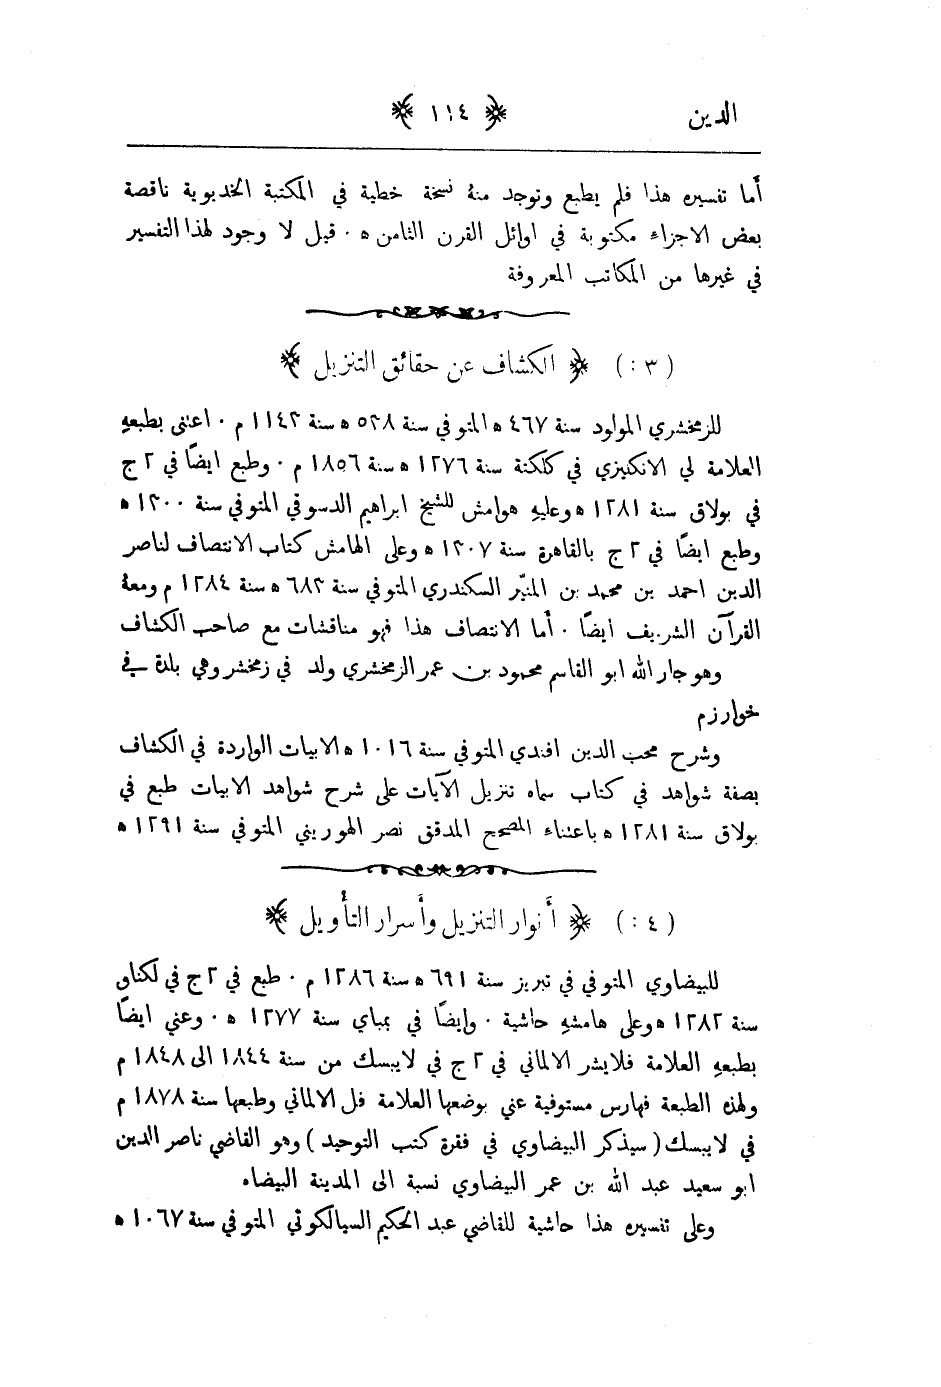 الدين ﴿ ١١٤ ﴾
أما تفسيره هذا فلم يطبع وتوجد منهُ نسخة خطية في المكتبة الخديوية ناقصة
بعض الاجزاء مكتوبة في اوائل القرن الثامن ه ٠ قيل لا وجود لهذا التفسير
في غيرها من المكاتب المعروفة
( ٣ : ) ﴿ الكشاف عن حقائق التنزيل ﴾
للزمخشري المولود سنة ٤٦٧ ه المتوفي سنة ٥٣٨ ه سنة ١١٤٣ م ٠ اعتنى بطبعهِ
العلامة لي الانكليزي في كلكتة سنة ١٢٧٦ ه سنة ١٨٥٦ م ٠ وطبع ايضًا في ٢ ج
في بولاق سنة ١٢٨١ ه وعليهِ هوامش للشيخ ابراهيم الدسوقي المتوفي سنة ١٣٠٠ ه
وطبع ايضًا في ٢ ج بالقاهرة سنة ١٣٠٧ ه وعلى الهامش كتاب الانتصاف لناصر
الدين احمد بن محمد بن المنيّر السكندري المتوفي سنة ٦٨٣ ه سنة ١٢٨٤ م ومعهُ
القرآن الشريف ايضًا ٠ أما الانتصاف هذا فهو مناقشات مع صاحب الكشاف
وهو جار الله ابو القاسم محمود بن عمر الزمخشري ولد في زمخشر وهي بلدة في
خوارزم
وشرح محب الدين افندي المتوفي سنة ١٠١٦ ه الابيات الواردة في الكشاف
بصفة شواهد في كتاب سماه تنزيل الآيات على شرح شواهد الابيات طبع في
بولاق سنة ١٢٨١ ه باعتناء المصحح المدقق نصر الهوريني المتوفي سنة ١٢٩١ ه
( ٤ : ) ﴿ أنوار التنزيل وأسرار التأويل ﴾
للبيضاوي المتوفي في تبريز سنة ٦٩١ ه سنة ١٢٨٦ م ٠ طبع في ٢ ج في لكناو
سنة ١٢٨٢ ه وعلى هامشهِ حاشية ٠ وايضًا في بمباي سنة ١٢٧٧ ه ٠ وعني ايضًا
بطبعهِ العلامة فلايشر الالماني في ٢ ج في لايبسك من سنة ١٨٤٤ الى ١٨٤٨ م
ولهذه الطبعة فهارس مستوفية عني بوضعها العلامة فل الالماني وطبعها سنة ١٨٧٨ م
في لايبسك ( سيذكر البيضاوي في فقرة كتب التوحيد ) وهو القاضي ناصر الدين
ابو سعيد عبد الله بن عمر البيضاوي نسبة الى المدينة البيضاء
وعلى تفسيره هذا حاشية للقاضي عبد الحكيم السيالكوتي المتوفي سنة ١٠٦٧ ه